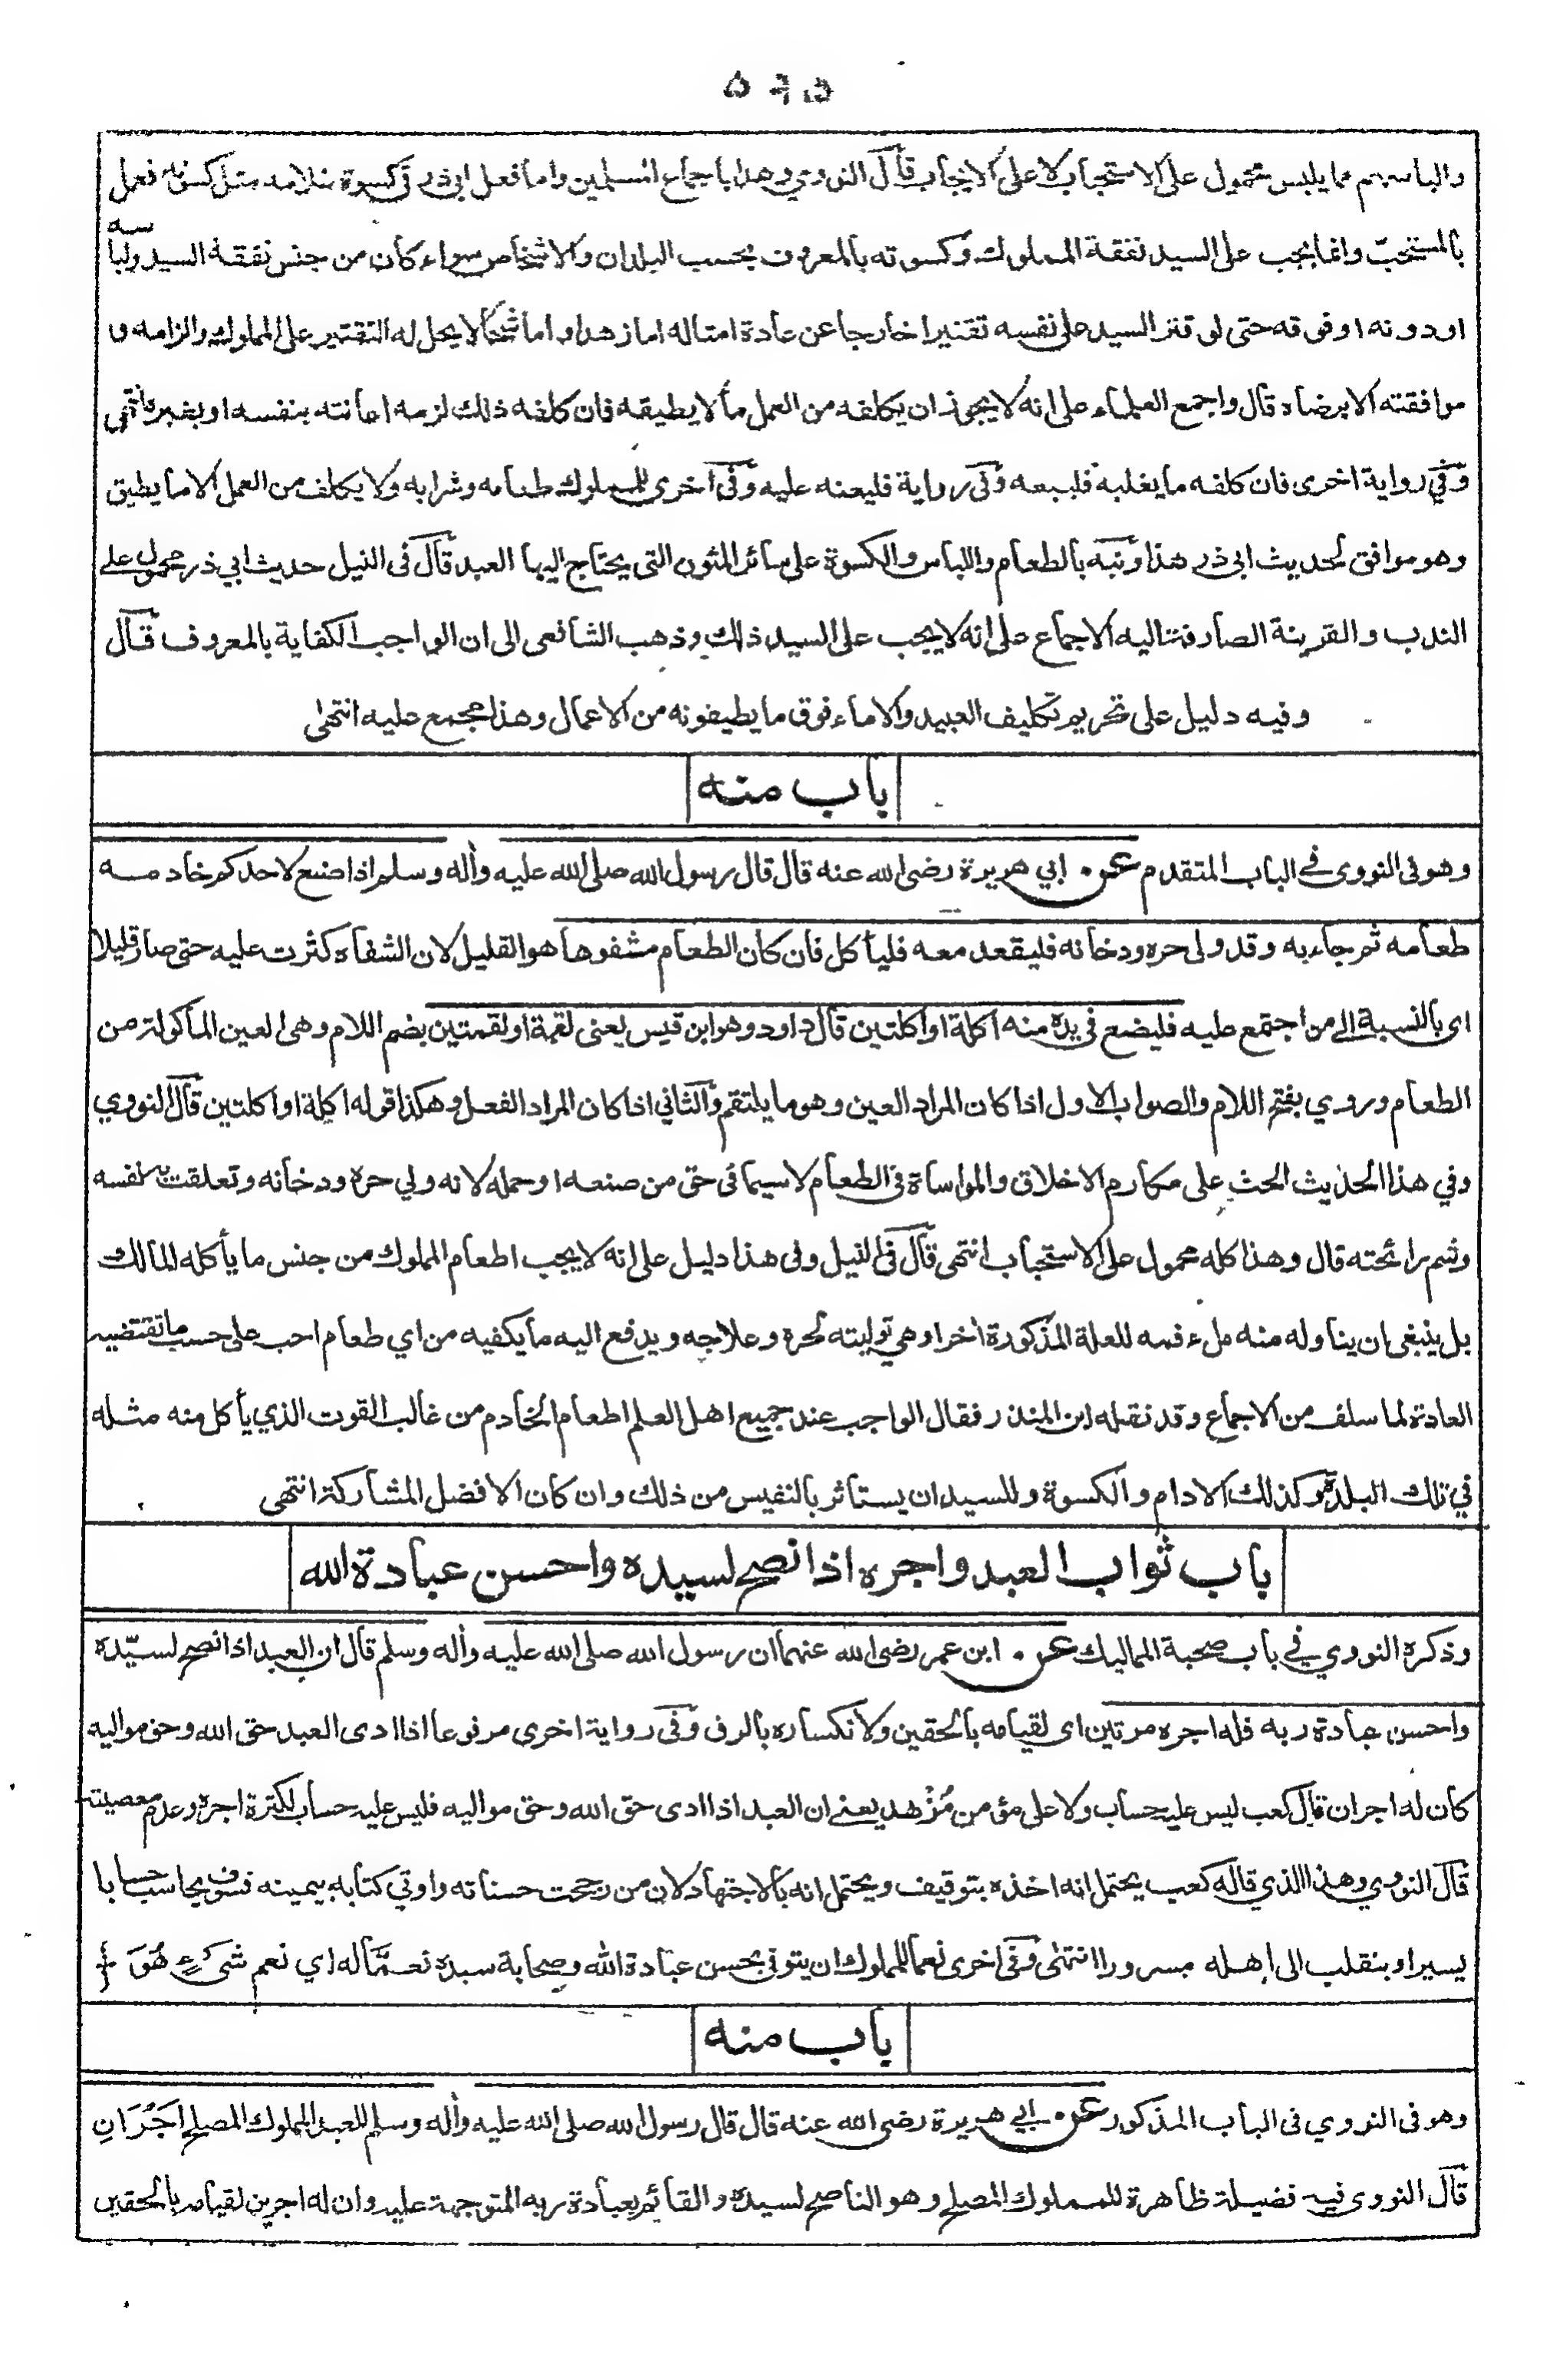 والباسهم مما يلبس محمول على الاستحباب لا على الايجاب قال النووي وهذا باجماع المسلمين واما فعل ابي ذر في كسوة غلامه مثل كسوته فعمل
بالمستحبّ وانما يجب على السيد نفقة المملوك وكسوته بالمعروف بحسب البلدان والاشخاص سواء كان من جنس نفقة السيد ولباسه
او دونه او فوقه حتى لو قتر السيد على نفسه تقتيرا خارجا عن عادة امثاله اما زهدا واما شحّا لا يحل له التقتير على المملوك والزامه و
موافقته الا برضاه قال واجمع العلماء على انه لا يجوز ان يكلفه من العمل ما لا يطيقه فان كلفه ذلك لزمه اعانته بنفسه او بغيره انتهى
وفي رواية اخرى فان كلفه ما يغلبه فليبعه وفي رواية فليعنه عليه وفى اخرى للمملوك طعامه وشرابه ولا يكلف من العمل الا ما يطيق
وهو موافق لحديث ابى ذر هذا ونبه بالطعام واللباس والكسوة على سائر المئون التى يحتاج اليها العبد قال فى النيل حديث ابي ذر محمول على
الندب والقرينة الصارفة اليه الاجماع على انه لا يجب على السيد ذلك وذهب الشافعى الى ان الواجب الكفاية بالمعروف قال
وفيه دليل على تحريم تكليف العبيد والاماء فوق ما يطيقونه من الاعمال وهذا مجمع عليه انتهى
باب منه
وهو فى النووى فى الباب المتقدم عن ابي هريرة رضى الله عنه قال قال رسول الله صلى الله عليه وأله وسلم اذا صنع لاحدكم خادمه
طعامه ثم جاء به وقد ولى حره ودخانه فليقعد معه فليأكل فان كان الطعام مشفوها هو القليل لان الشفاه كثرت عليه حتى صار قليلا
اى بالنسبة الى من اجتمع عليه فليضع في يده منه اكلة او اكلتين قال داود وهو ابن قيس يعنى لقمة او لقمتين بضم اللام وهى العين المأكولة من
الطعام وروي بفتح اللام والصواب الاول اذا كان المراد العين وهو ما يلتقم والثاني اذا كان المراد الفعل وهكذا قوله اكلة او اكلتين قال النووي
وفي هذا الحديث الحث على مكارم الاخلاق والمواساة فى الطعام لا سيما فى حق من صنعه او حمله لانه ولي حره ودخانه وتعلقت به نفسه
وشم رائحته قال وهذا كله محمول على الاستحباب انتهى قال فى النيل وفى هذا دليل على انه لا يجب اطعام المملوك من جنس ما يأكله المالك
بل ينبغى ان يناوله منه ملء فمه للعلة المذكورة اخرا وهي توليته لحره وعلاجه ويدفع اليه ما يكفيه من اي طعام احب على حسب ما تقتضيه
العادة لما سلف من الاجماع وقد نقله ابن المنذر فقال الواجب عند جميع اهل العلم اطعام الخادم من غالب القوت الذي يأكل منه مثله
في تلك البلدة وكذلك الادام والكسوة وللسيد ان يستاثر بالنفيس من ذلك وان كان الافضل المشاركة انتهى
باب ثواب العبد واجره اذا نصح لسيده واحسن عبادة الله
وذكره النووي في باب صحبة المماليك عن ابن عمر رضى الله عنهما ان رسول الله صلى الله عليه وأله وسلم قال ان العبد اذا نصح لسيّده
واحسن عبادة ربه فله اجره مرتين اى لقيامه بالحقين ولانكساره بالرق وفى رواية اخرى مرفوعا اذا ادى العبد حق الله وحق مواليه
كان له اجران قال كعب ليس عليه حساب ولا على مؤمن مُزْهد يعنى ان العبد اذا ادى حق الله وحق مواليه فليس عليه حساب لكثرة اجره وعدم معصيته
قال النووي وهذا الذي قاله كعب يحتمل انه اخذه بتوقيف ويحتمل انه بالاجتهاد لان من رجحت حسناته واوتي كتابه بيمينه فسوف يحاسب حسابا
يسيرا وينقلب الى اهله مسرورا انتهى وفى اخرى نعما للمملوك ان يتوفى بحسن عبادة الله وصحابة سيده نعمّا له اي نعم شىءٍ هُوَ
باب منه
وهو فى النووي فى الباب المذكور عن ابي هريرة رضى الله عنه قال قال رسول الله صلى الله عليه وأله وسلم للعبد المملوك المصلح اَجْرَانِ
قال النووى فيه فضيلة ظاهرة للمملوك المصلح وهو الناصح لسيده والقائم بعبادة ربه المتوجهة عليه وان له اجرين لقيامه بالحقين